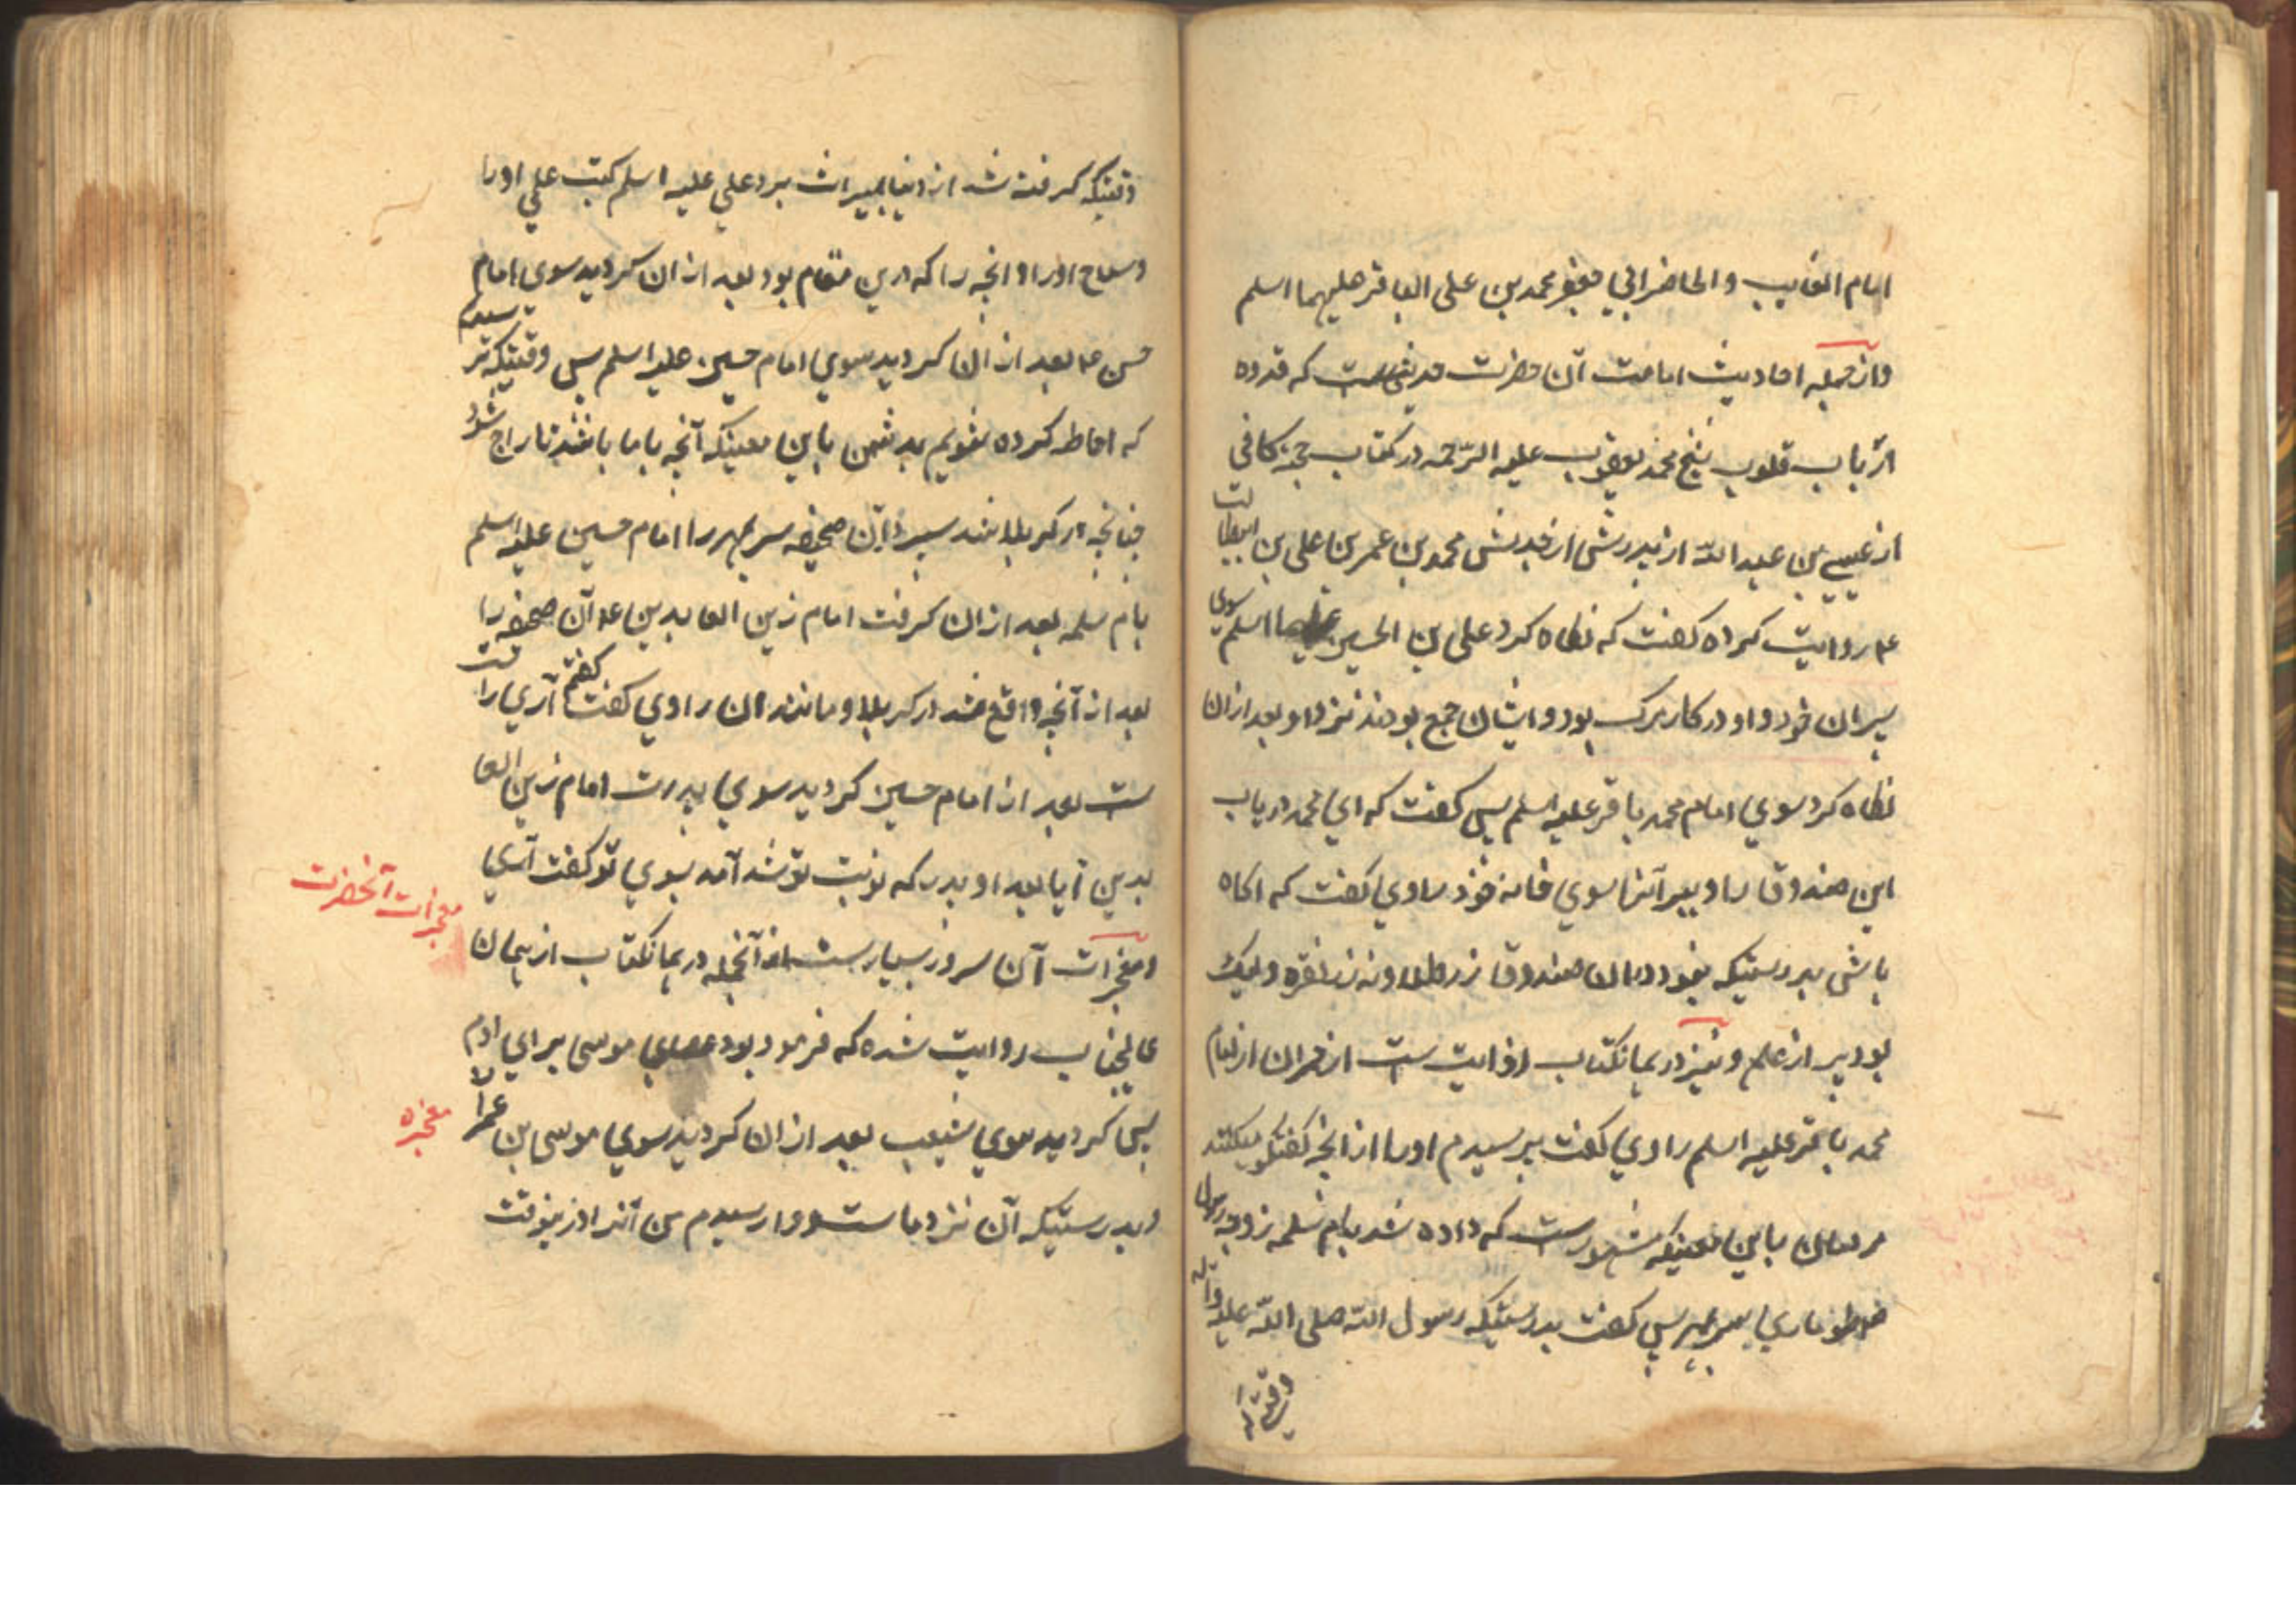 امام الغایب والحاضر ابی جعفر محمد بن علی الباقر علیهما اسلم
واز جمله احادیث امامت آن حضرت حدیثی ست که قدوه
ارباب قلوب شیخ محمد یعقوب علیه الرّحمه در کتاب حجة کافی
از عیسی بن عبد اللّه از پدرش از جدش محمد بن عمر بن علی بن ابیطالب
ع روایت کرده گفت که نگاه کرد علی بن الحسین علیهما اسلم سوی
پسران خود و او در کار مرگ بود و ایشان جمع بودند نزد او بعد ازان
نگاه کرد سوی امام محمد باقر علیه اسلم پس گفت که ای محمد دریاب
این صندوق را و ببر آنرا سوی خانه خود راوی گفت که اگاه
باشی بدرستیکه نبود دران صندوق زر طلا و نه زر نقره ولیک
بود پر از علم و نیز در همانکتاب روایت ست از حمران از امام
محمد باقر علیه اسلم راوی گفت پرسیدم اورا از انچه گفتگو میکنند
مردمان باین معنیکه مشهور ست که داده شد بام سلمه زوجه رسول
طوماری سر بمهر پس گفت بدرستیکه رسول اللّه صلی اللّه علیه واله
وقتیکه
وقتیکه گرفته شد از دنیا بمیراث برد علی علیه اسلم کتب علمی اورا
وسلاح اورا و انچه را که درین مقام بود بعد ازان گردید سوی امام
حسن ع بعد ازان گردید سوی امام حسین علیه اسلم پس وقتیکه ترسیدیم
که احاطه کرده شویم بدشمن باین معینکه آنچه با ما باشد تاراج شود
چنانچه در کربلا شد سپرد آن صحیفه سر بمهر را امام حسین علیه اسلم
بام سلمه بعد ازان گرفت امام زین العابدین ع آن صحیفه را
بعد از آنچه واقع شد در کربلا و مانند ان راوی گفت گفتم آری راست
ست بعد از امام حسین گردید سوی پدرت امام زین العا
بدین آیا بعد او پدر که نوبت تو شد آمد بسوی تو گفت آری
معجزات آنحضرت
ومعجزات آن سرور بسیار ست از آنجمله در همانکتاب از همان
عالیجناب روایت شده که فرمود بود عصای موسی برای ادم ع
پس گردید سوی شعیب بعد ازان گردید سوی موسی بن عمران
معجزه
وبدرستیکه آن نزد ما ست و وارسیدم من آنرا درینوقت